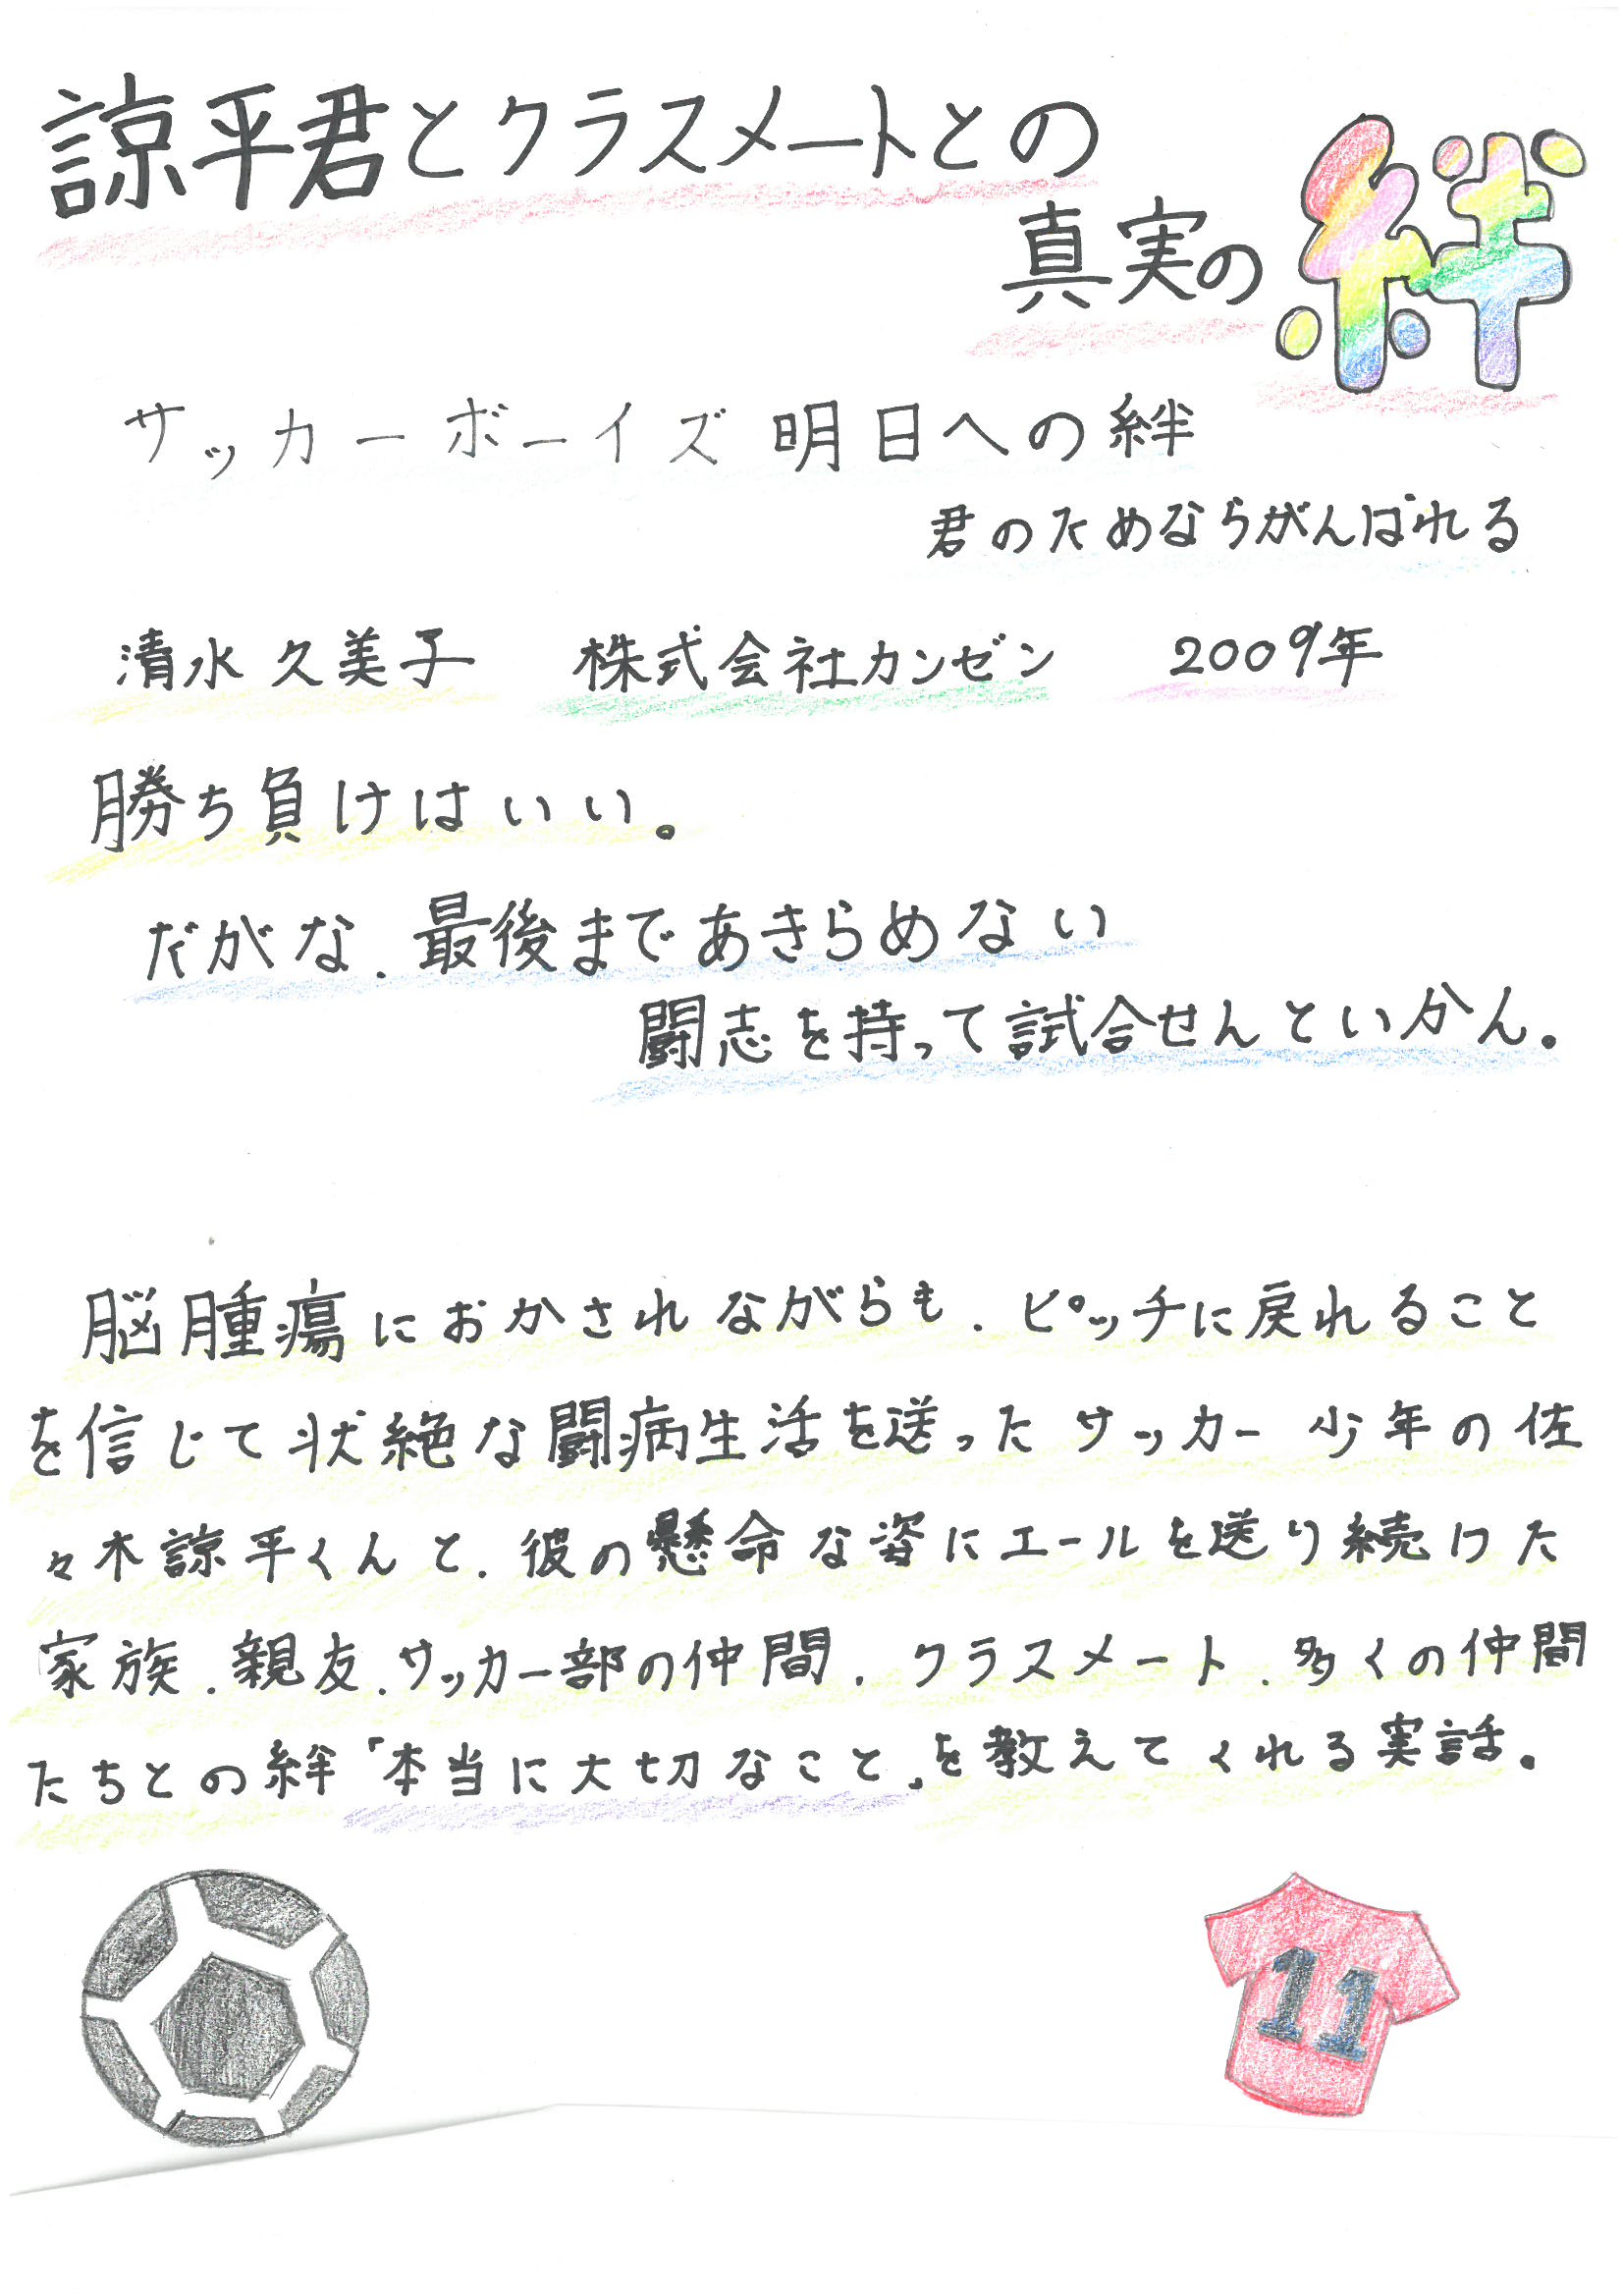 諒平君とクラスメートとの
真実の絆
サッカーボーイズ 明日への絆
君のためならがんばれる
清水 久美子 株式会社カンゼン 2009年
勝ち負けはいい。
だがな、最後まであきらめない
闘志を持って試合せんといかん。
脳腫瘍におかされながらも、ピッチに戻れること
を信じて状絶な闘病生活を送ったサッカー少年の佐
々木諒平くんと、彼の懸命な姿にエールを送り続けた
家族、親友、サッカー部の仲間、クラスメート、多くの仲間
たちとの絆「本当に大切なこと」を教えてくれる実話。
11